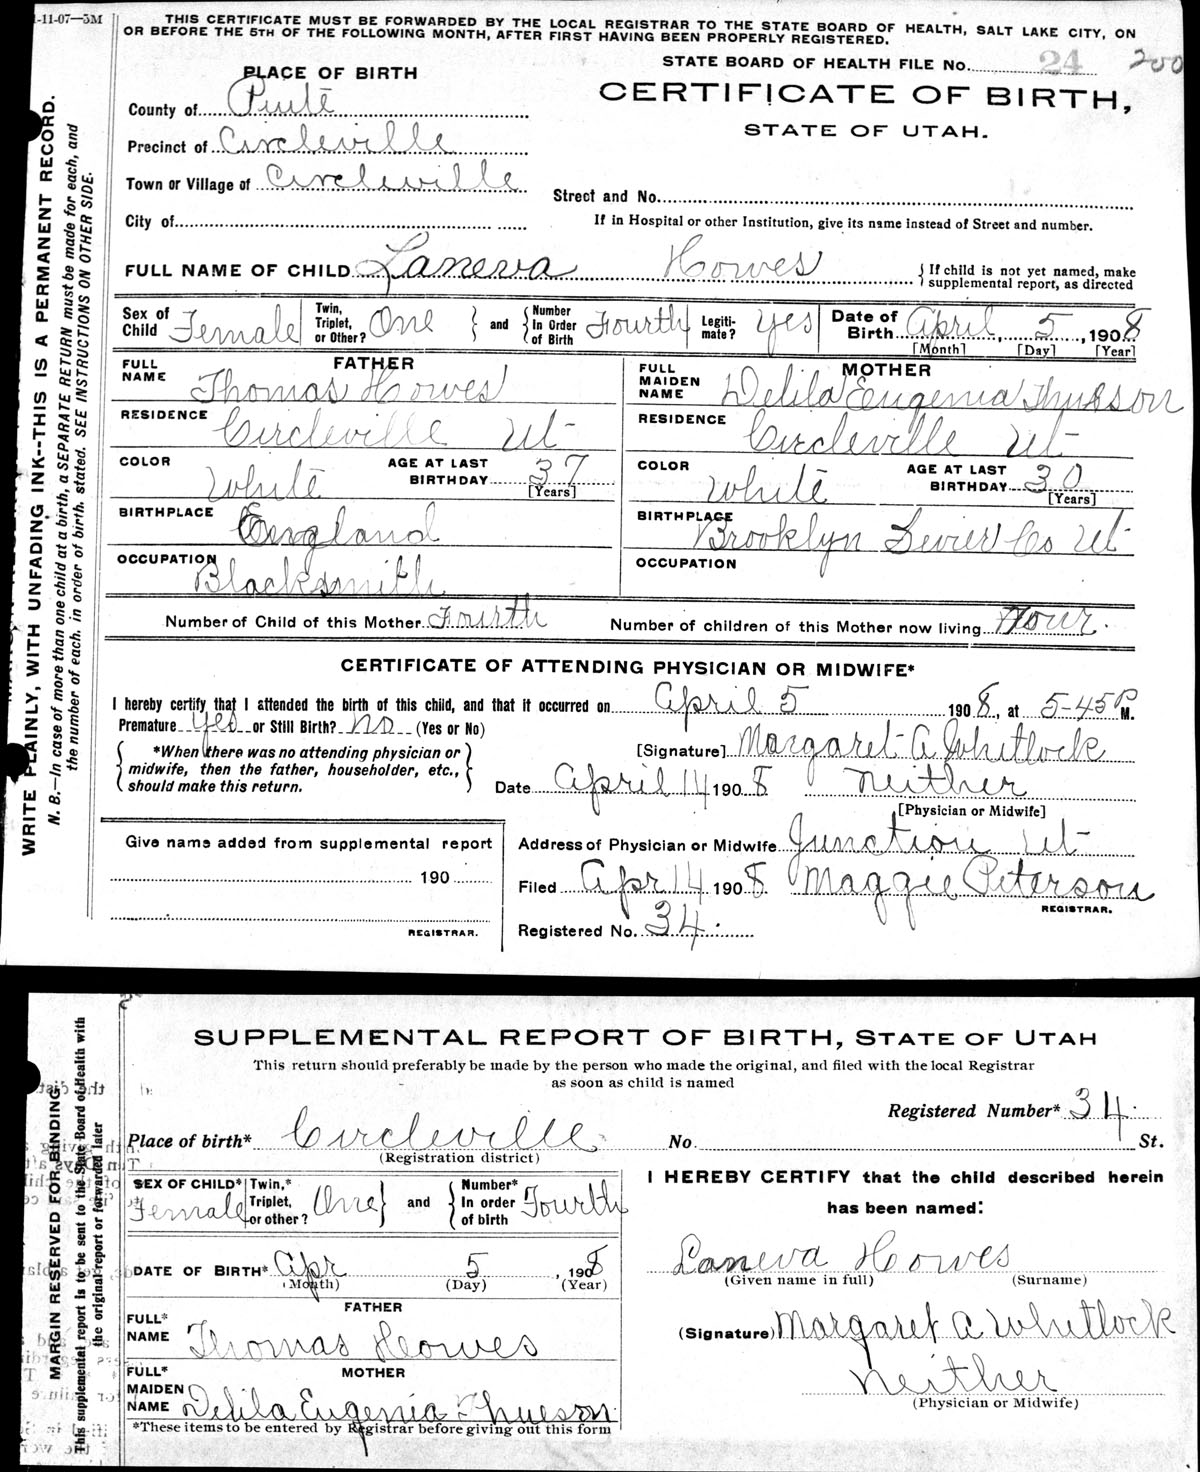 1-11-07—3M
THIS CERTIFICATE MUST BE FORWARDED BY THE LOCAL REGISTRAR TO THE STATE BOARD OF HEALTH, SALT LAKE CITY, ON
OR BEFORE THE 5TH OF THE FOLLOWING MONTH, AFTER FIRST HAVING BEEN PROPERLY REGISTERED.
STATE BOARD OF HEALTH FILE No. 24 200
PLACE OF BIRTH
CERTIFICATE OF BIRTH,
STATE OF UTAH.
County of Piute
Precinct of Circleville
Town or Village of Circleville
Street and No.
City of
If in Hospital or other Institution, give its name instead of Street and number.
FULL NAME OF CHILD Laneva Howes
{ If child is not yet named, make
supplemental report, as directed
Sex of Child Female
Twin, Triplet, or Other? One } and { Number In Order of Birth Fourth
Legiti-mate? Yes
Date of Birth April 5, 1908
[Month] [Day] [Year]
FATHER
FULL NAME Thomas Howes
RESIDENCE Circleville Ut
COLOR White
AGE AT LAST BIRTHDAY 37
[Years]
BIRTHPLACE England
OCCUPATION Blacksmith
MOTHER
FULL MAIDEN NAME Delila Eugenia Thueson
RESIDENCE Circleville Ut
COLOR White
AGE AT LAST BIRTHDAY 30
[Years]
BIRTHPLACE Brooklyn Sevier Co Ut
OCCUPATION
Number of Child of this Mother Fourth
Number of children of this Mother now living Four
CERTIFICATE OF ATTENDING PHYSICIAN OR MIDWIFE*
I hereby certify that I attended the birth of this child, and that it occurred on April 5 1908, at 5-45 P M.
Premature Yes or Still Birth? No (Yes or No)
*When there was no attending physician or
midwife, then the father, householder, etc.,
should make this return.
[Signature] Margaret A Whitlock
Date April 14 1908 Neither
[Physician or Midwife]
Give name added from supplemental report
190
REGISTRAR.
Address of Physician or Midwife Junction Ut
Filed Apr 14 1908 Maggie Peterson
REGISTRAR.
Registered No. 34
WRITE PLAINLY, WITH UNFADING INK--THIS IS A PERMANENT RECORD.
N. B.—In case of more than one child at a birth, a SEPARATE RETURN must be made for each, and
the number of each, in order of birth, stated. SEE INSTRUCTIONS ON OTHER SIDE.
SUPPLEMENTAL REPORT OF BIRTH, STATE OF UTAH
This return should preferably be made by the person who made the original, and filed with the local Registrar
as soon as child is named
Registered Number* 34
Place of birth* Circleville No. St.
(Registration district)
SEX OF CHILD* Female
Twin,* Triplet, or other? One } and { Number* In order of birth Fourth
DATE OF BIRTH* Apr 5, 1908
(Month) (Day) (Year)
FATHER
FULL* NAME Thomas Howes
MOTHER
FULL* MAIDEN NAME Delila Eugenia Thueson
*These items to be entered by Registrar before giving out this form
I HEREBY CERTIFY that the child described herein
has been named:
Laneva Howes
(Given name in full) (Surname)
(Signature) Margaret A Whitlock
Neither
(Physician or Midwife)
MARGIN RESERVED FOR BINDING
This supplemental report is to be sent to the State Board of Health with
the original report or forwarded later